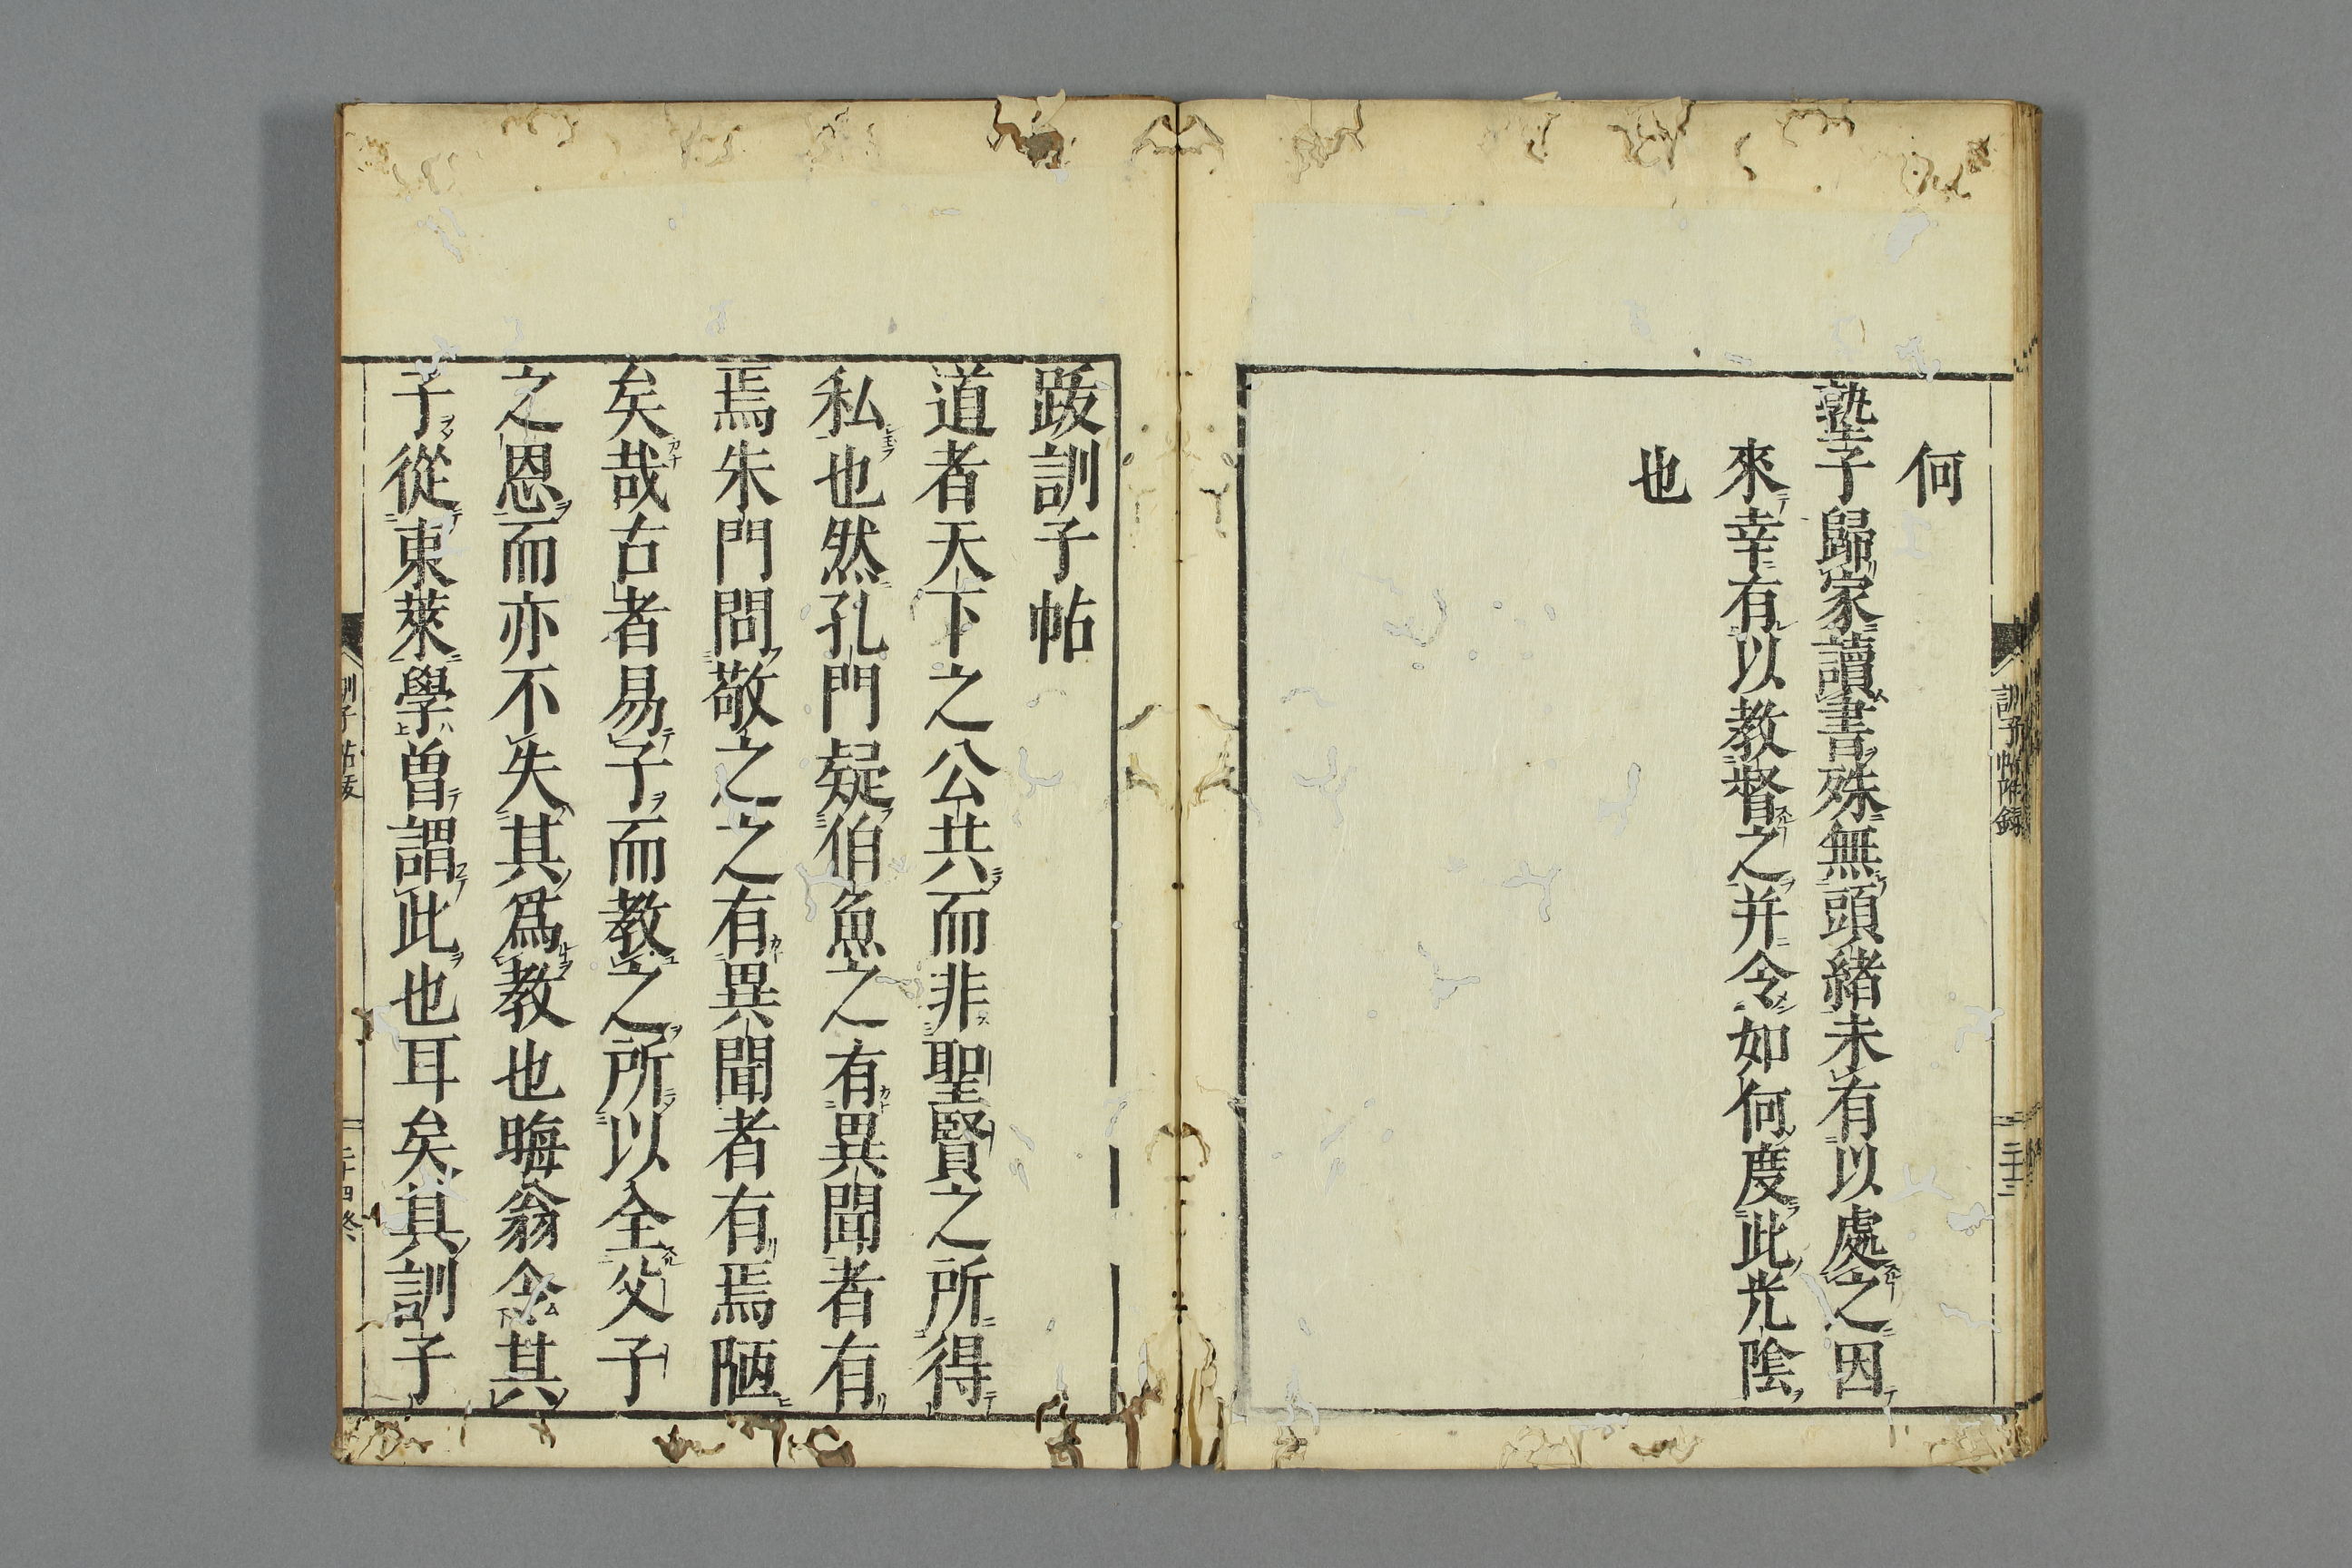 何
塾子歸家讀書殊無頭緒未有以處之因
來幸有以教督之并令如何度此光陰
也
訓子帖附錄
二十三
跋訓子帖
道者天下之公共而非聖賢之所得
私也然孔門疑伯魚之有異聞者有
焉朱門問敬之之有異聞者有焉陋
矣哉古者易子而教之所以全父子
之恩而亦不失其爲教也晦翁令其
子從東萊學曽謂此也耳矣其訓子
訓子帖跋
二十四終